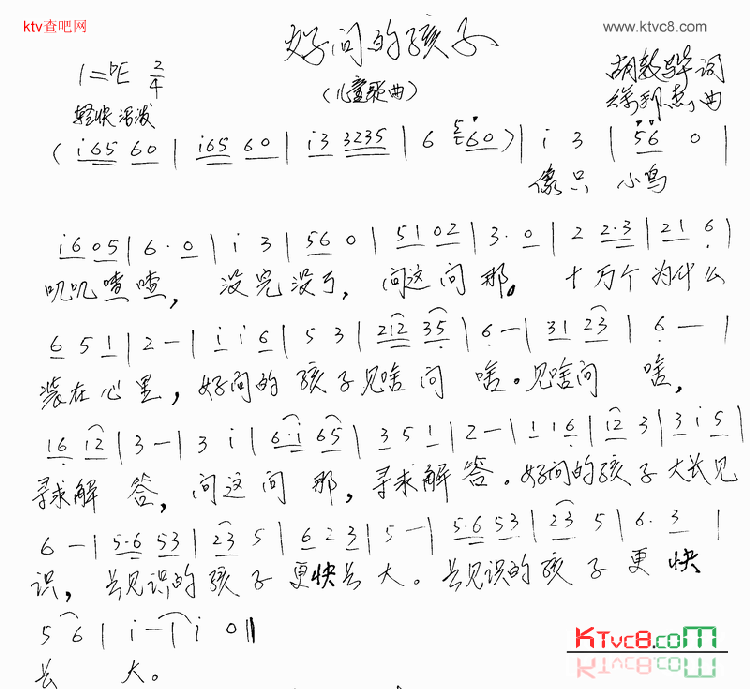 ktv查吧网
www.ktvc8.com
好问的孩子
1=bE 2/4
（儿童歌曲）
胡敦骅 词
曲
轻快 活泼
( i65 60 | i65 60 | i3 3235 | 6 5 60 ) | i 3 | 56 0 |
像只 小鸟
i605 | 6·0 | i 3 | 56 0 | 51 02 | 3·0 | 2 2·3 | 21 6 |
叽叽喳喳，没完没了，问这问那。十万个为什么
6 5 1 | 2 - | i i 6 | 5 3 | 212 35 | 6 - | 31 23 | 6 - |
装在心里，好问的孩子见啥问啥。见啥问啥，
16 12 | 3 - | 3 i | 6·i 65 | 3 5 1 | 2 - | 1 16 | 12 3 | 3 i 5 |
寻求解答，问这问那，寻求解答。好问的孩子大长见
6 - | 5·6 53 | 23 5 | 6 2 3 | 5 - | 5·6 53 | 23 5 | 6·3 |
识，长见识的孩子更快长大。长见识的孩子更快
5 6 | i - | i 0 ||
长大。
KTVC8.COM